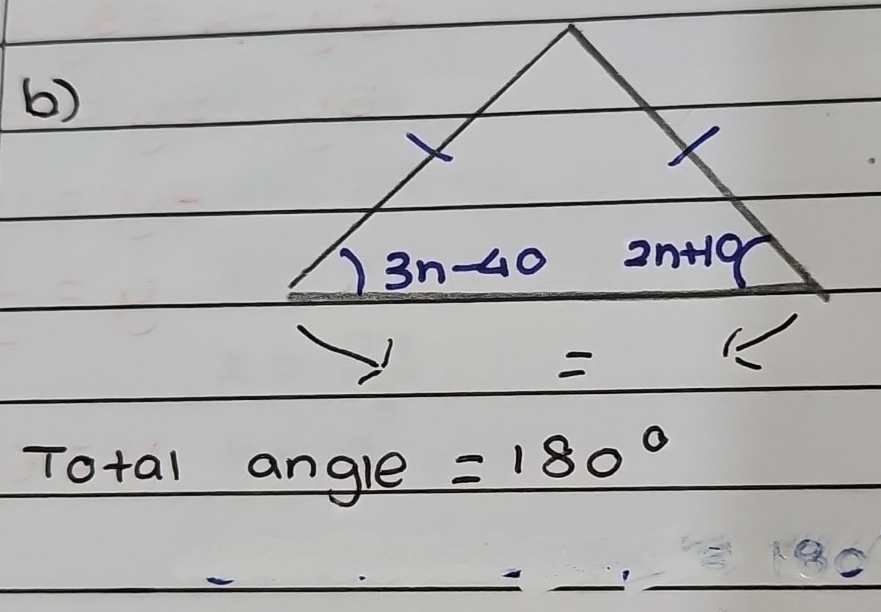 b)
3n-40 2n+10
=
Total angle = 180°
= 180